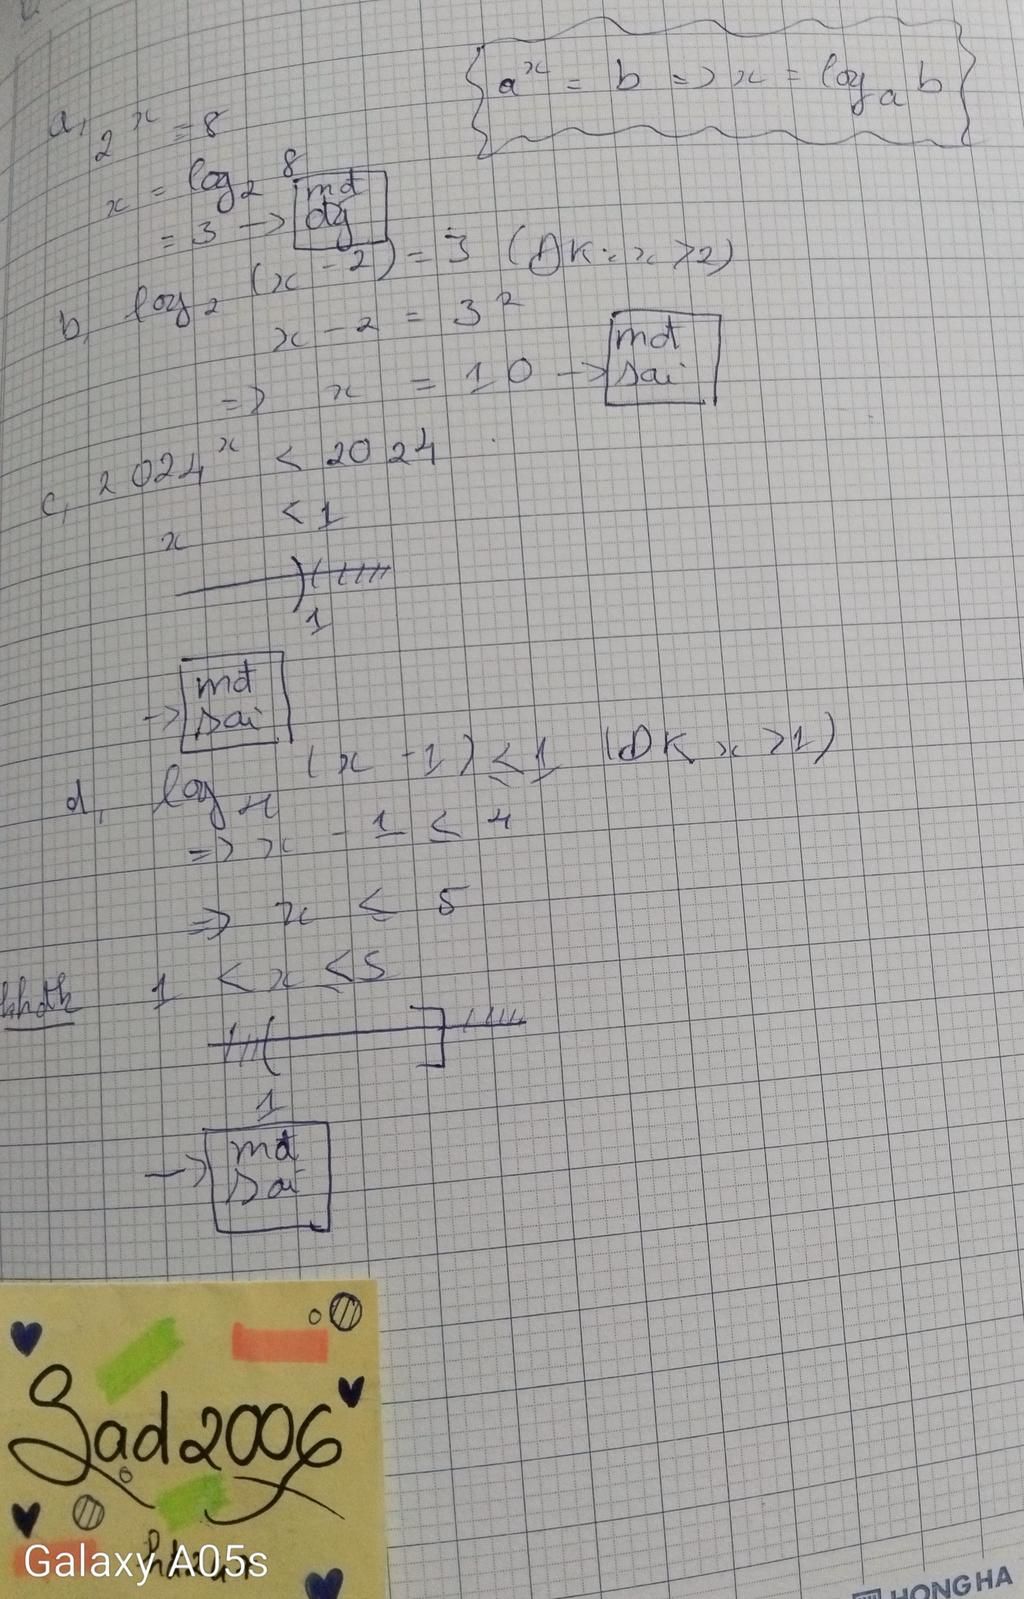 a, 2^x = 8
{ a^x = b => x = log_a b }
x = log_2 8
= 3 -> mđ
đg
b, log_2 (x - 2) = 3 (ĐK: x > 2)
x - 2 = 3^2
=> x = 10 -> mđ
sai
c, 2024^x < 2024
x < 1
1
-> mđ
sai
d, log_4 (x - 1) ≤ 1 (ĐK x > 1)
=> x - 1 ≤ 4
=> x ≤ 5
1 < x ≤ 5
1
-> mđ
sai
Sad2006
Galaxy A05s
HONG HA